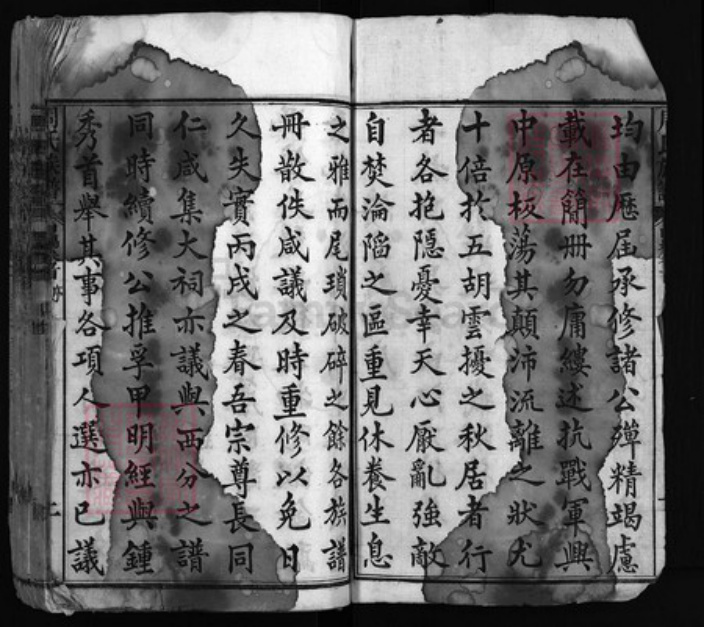 均由歷屆承修諸公殫精竭慮
載在簡冊勿庸縷述抗戰軍興
中原板蕩其顛沛流離之狀尤
十倍於五胡雲擾之秋居者行
者各抱隱憂幸天心厭亂強敵
自焚淪陷之區重見休養生息
之雅而尾瑣破碎之餘各族譜
冊散佚咸議及時重修以免日
久失實丙戌之春吾宗尊長同
仁咸集大祠亦議與西分之譜
同時續修公推孚甲明經與鍾
秀首舉其事各項人選亦已議